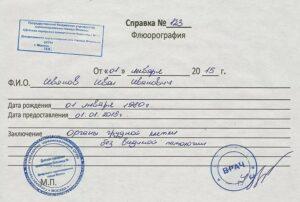 Справка № 123
Флюорография
От «01» января 2015 г.
Ф.И.О. Иванов Иван Иванович
Дата рождения 01 января 1980г
Дата предоставления 01.01.2015г.
Заключение Органы грудной клетки
без видимой патологии
М.П.
ВРАЧ